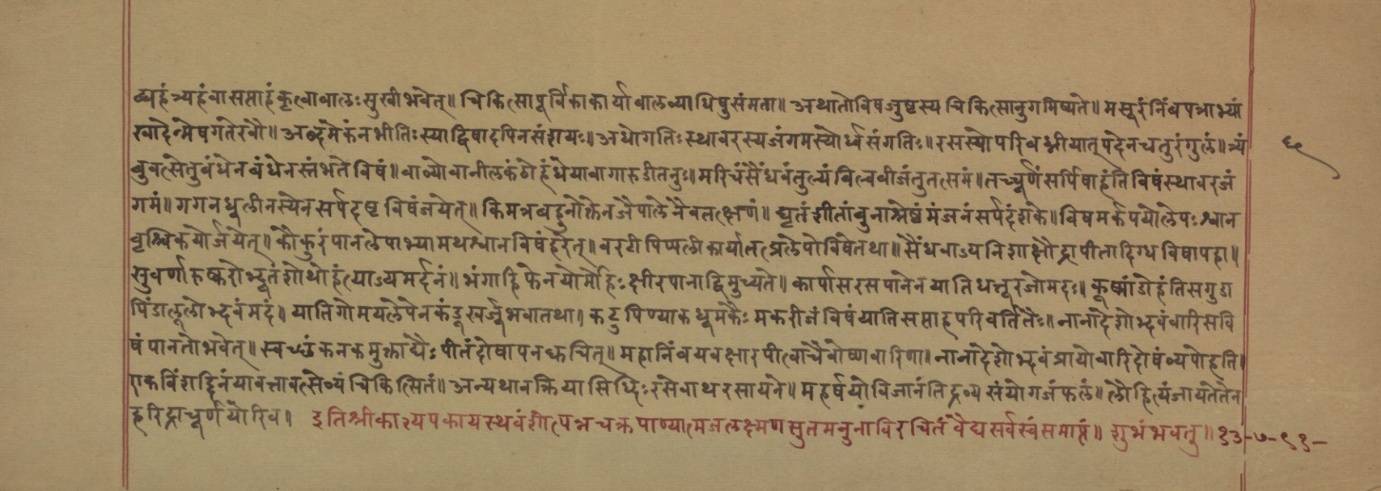 व्यहं त्र्यहं वा सप्ताहं कृत्वा बालः सुखी भवेत्॥ चिकित्सा पूर्विका कार्या बालव्याधिषु संमता॥ अथातो विषजुष्टस्य चिकित्सानुगमिष्यते॥ मसूरं निंबपत्राभ्यां
खादेन्मेषगतेरवौ॥ अब्दमेकं नभीतिः स्याद्विषादपि न संशयः॥ अधोगतिः स्थावरस्य जंगमस्योर्ध्व संगतिः॥ रसस्योपरि बध्नीयात् पदेन चतुरंगुलं॥ त्र्यं
बुवत्सेतुबंधेन बंधेन स्तंभते विषं॥ वाव्योवानीलकंठोहंध्येयावागारुडीतनुः॥ मरिचं सैंधवंतुल्यं बिल्वबीजंतु तत्समं॥ तच्चूर्णं सर्पिषाहंति विषं स्थावरजं
गमं॥ गगनधुलीनस्येन सर्पदष्ट विषं जयेत्॥ किमत्र बहुनोक्तेन जैपालेनैव तत्क्षणं॥ घृतं शीतांबुनाश्रेष्ठमंजनं सर्पदंशके॥ विषमर्कपयोलेपः श्वान
वृश्चिकयोर्जयेत्॥ कौकुरं पानलेपाभ्यामथ श्वानविषंहरेत्॥ बररी पिप्पली कार्यातत्प्रलेपो विषेतथा॥ सैंधवाज्य निशाक्षौद्रा पीतादिग्ध विषापहा॥
सुवर्णारुष्करोद्भूतं शोथो हंत्याज्यमर्दनं॥ भंगाहिफेनयोर्मोहः क्षीरपानाद्विमुच्यते॥ कार्पासरसपानेन याति धत्तूरजोमदः॥ कूष्मांडो हंति सगुडा
पिंडालूलोद्भवं मदं॥ याति गोमयलेपेन कंडूखर्जूभवातथा॥ कटुपिण्याकधूमकैः मकरीजं विषं याति सप्ताहपरिवर्तितैः॥ नानादेशोद्भवंवारि सवि
षं पानतो भवेत्॥ स्वच्छं कनकमुक्ताद्यैः पीतं दोषाय न क्वचित्॥ महानिंबयवक्षार पीत्वा चैवोष्णवारिणा॥ नानादेशोद्भवं प्रायो वारिदोषं व्यपोहति॥
एकविंशद्दिनं यावत्तावत्सेव्यं चिकित्सितं॥ अन्यथा वक्रिया सिद्धिः रसेवाथ रसायने॥ महर्षयो विजानंति द्रव्य संयोगजं फलं॥ लौहित्यं जायते तेन
हरिद्राचूर्णयोरिव॥ इति श्रीकाश्यपकायस्थवंशोत्पन्नचक्रपाण्यात्मजलक्ष्मणसुतमनुनाविरचितं वैद्यसर्वस्वं समाप्तं॥ शुभं भवतु॥ १३-७-९१-